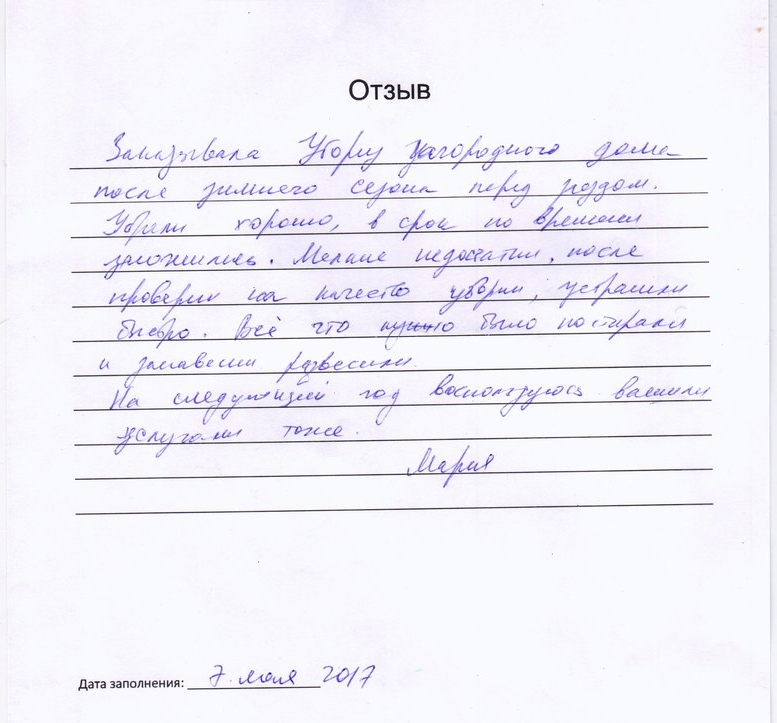 Отзыв
Заказывала уборку загородного дома
после зимнего сезона перед заездом.
Убрали хорошо, в срок по времени
уложились. Мелкие недостатки, после
проверки на качество уборки, устранили
быстро. Всё что нужно было постирали
и занавески развесили.
На следующий год воспользуюсь вашими
услугами тоже.
Мария
Дата заполнения: 7 мая 2017